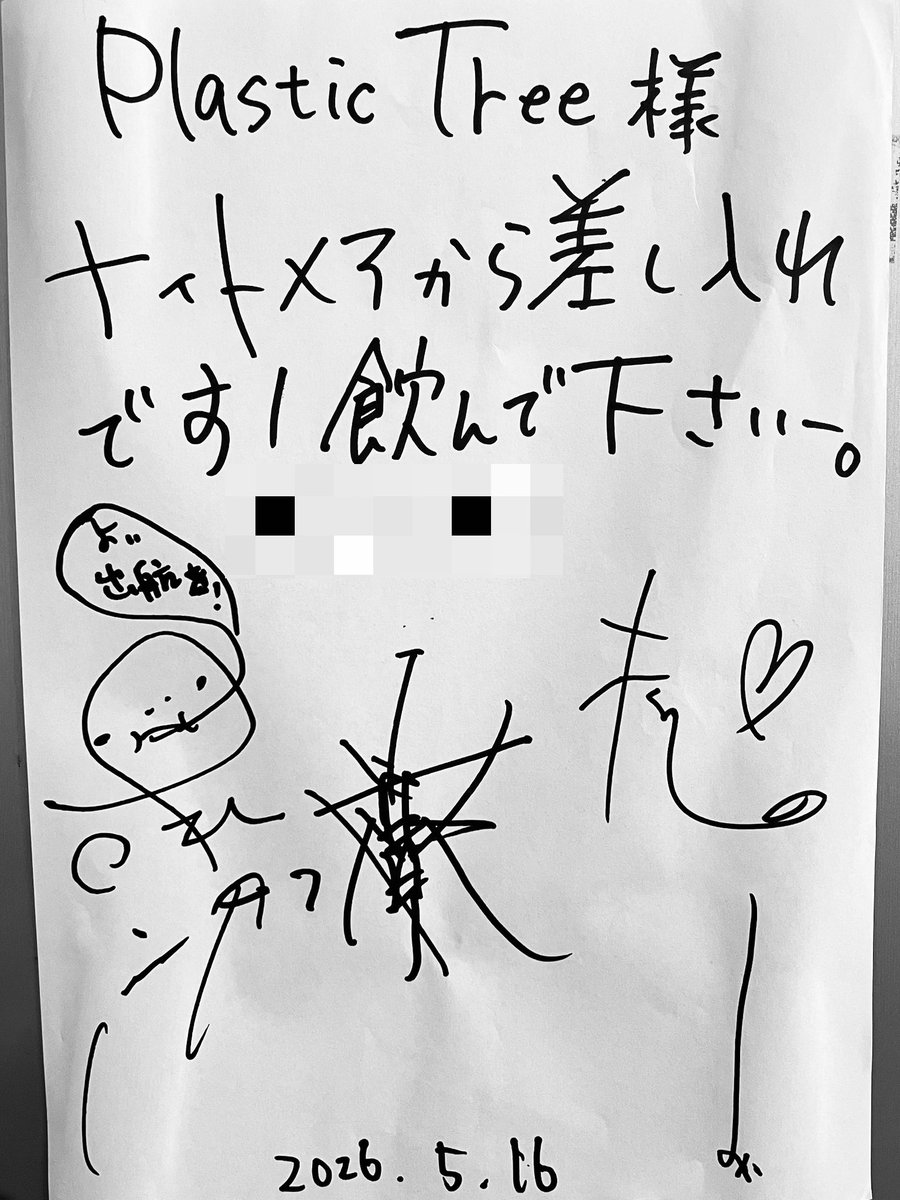 Plastic Tree 様
ナイトメアから差し入れ
です！飲んで下さいー。
よい
出航を！
2026.5.16